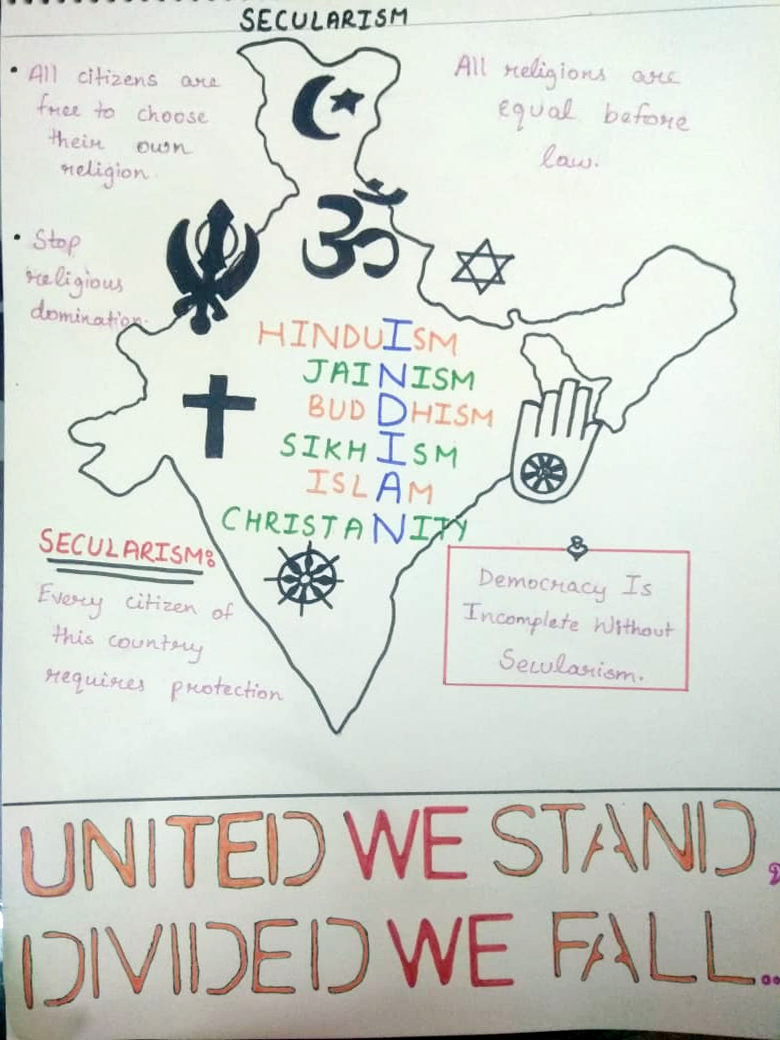 SECULARISM
• All citizens are
free to choose
their own
religion.
All religions are
equal before
law.
• Stop
religious
domination.
HINDUISM
JAINISM
BUDDHISM
SIKHISM
ISLAM
CHRISTANITY
SECULARISM:
Every citizen of
this country
requires protection
Democracy Is
Incomplete Without
Secularism.
UNITED WE STAND,
DIVIDED WE FALL..